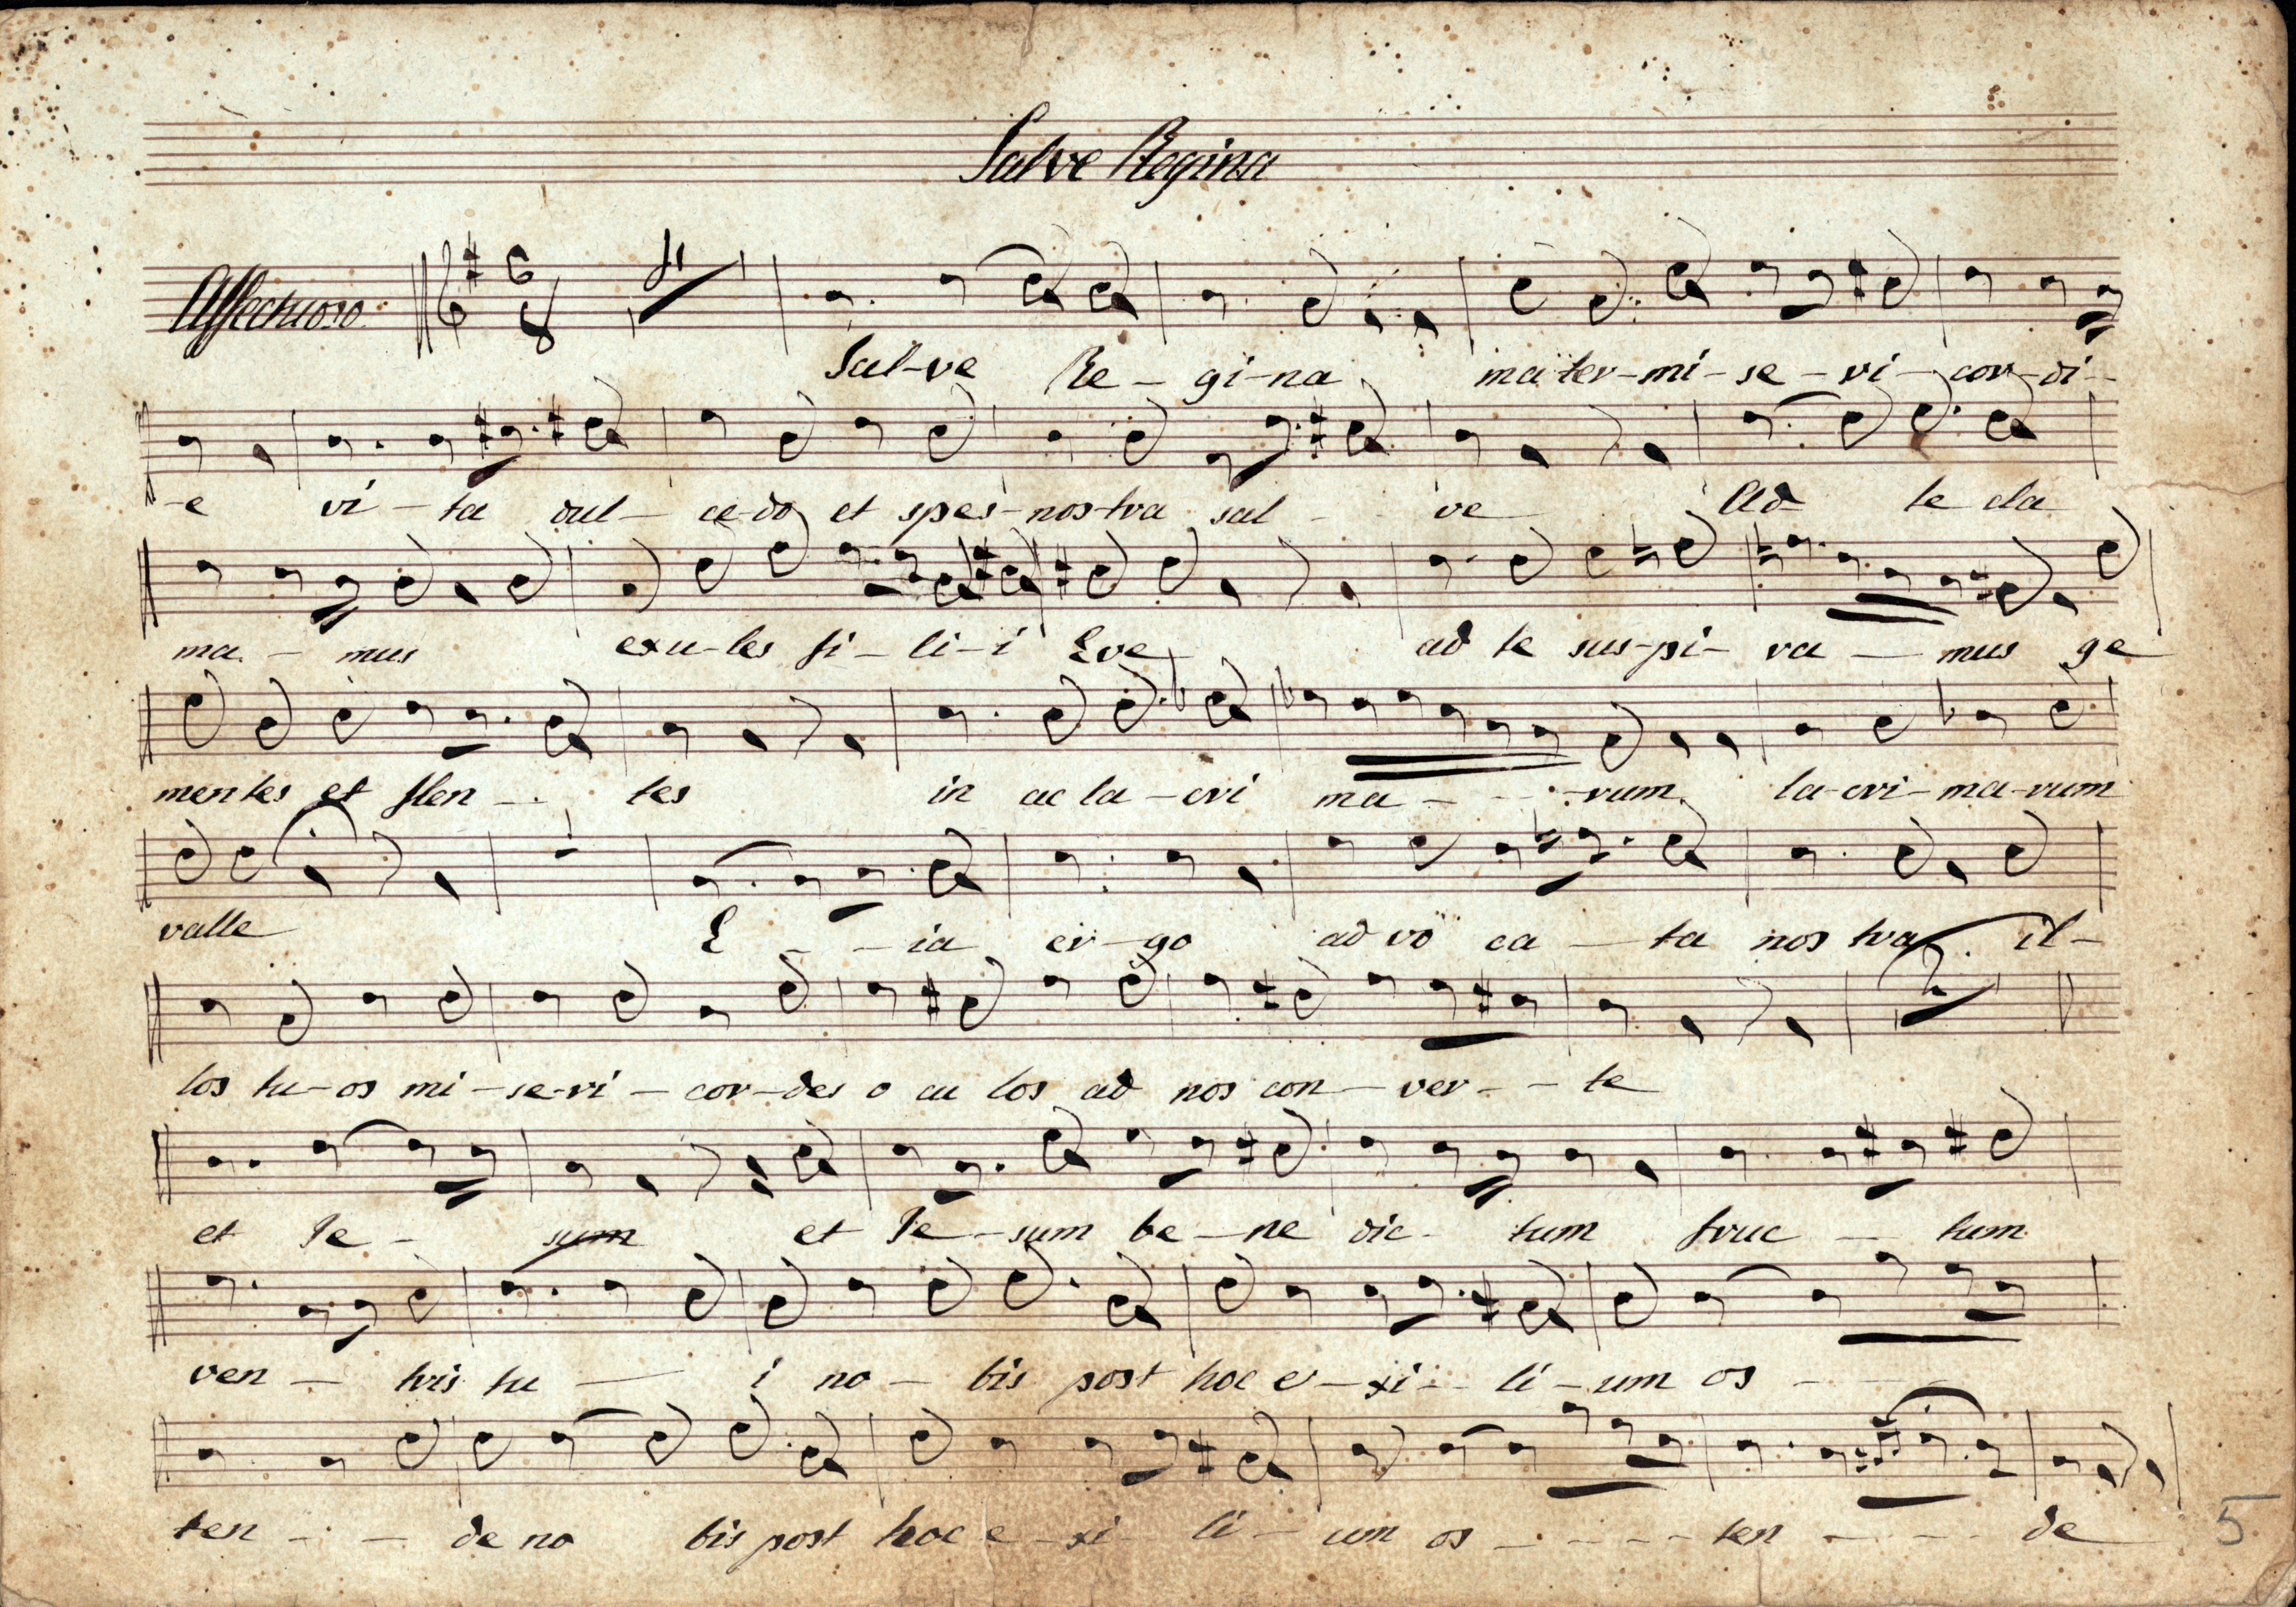 Salve Regina
Affectuoso
6
8
Sal-ve Re - gi-na ma ter-mi-se-ri-cor-di-
-e vi-ta dul-ce-do et spes-nos-tra sal - - ve Ad te cla
ma - mus exu-les fi-li-i Eve ad te sus-pi-ra - mus ge
mentes et flen - - tes in ac la-cri ma - - - rum la-cri-ma-rum
valle E - - ia er-go ad vo ca - ta nos tra il-
los tu-os mi-se-ri-cor-des o cu los ad nos con-ver - - te
et Ie - sum et Ie-sum be-ne dic - tum fruc - tum
ven - tris tu - i no-bis post hoc e-xi-li-um os - - -
ten - - - de no bis post hoc e-xi-li-um os - - - - ten - - - de
5